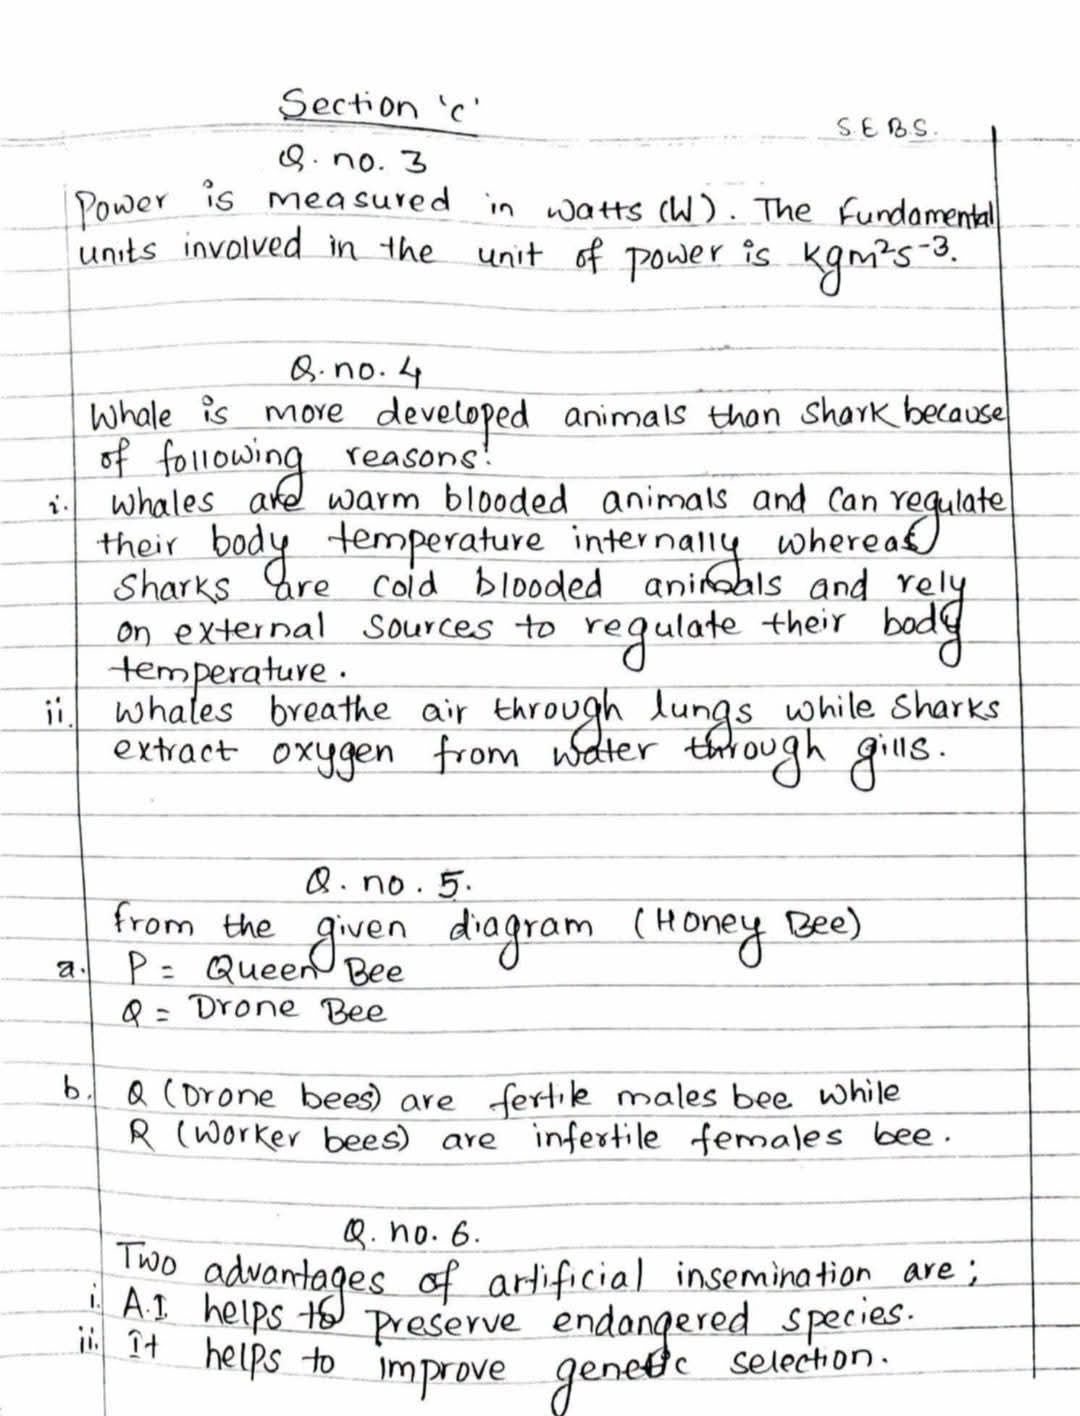 Section 'c'
S.E.B.S.
Q. no. 3
Power is measured in watts (W). The Fundamental
units involved in the unit of power is kgm²s⁻³.
Q. no. 4
Whale is more developed animals than Shark because
of following reasons:
i. Whales are warm blooded animals and can regulate
their body temperature internally whereas
Sharks are cold blooded animals and rely
on external sources to regulate their body
temperature.
ii. Whales breathe air through lungs while Sharks
extract oxygen from water through gills.
Q. no. 5.
from the given diagram (Honey Bee)
a. P = Queen Bee
Q = Drone Bee
b. Q (Drone bees) are fertile males bee while
R (Worker bees) are infertile females bee.
Q. no. 6.
Two advantages of artificial insemination are;
i. A.I. helps to preserve endangered species.
ii. It helps to improve genetic selection.